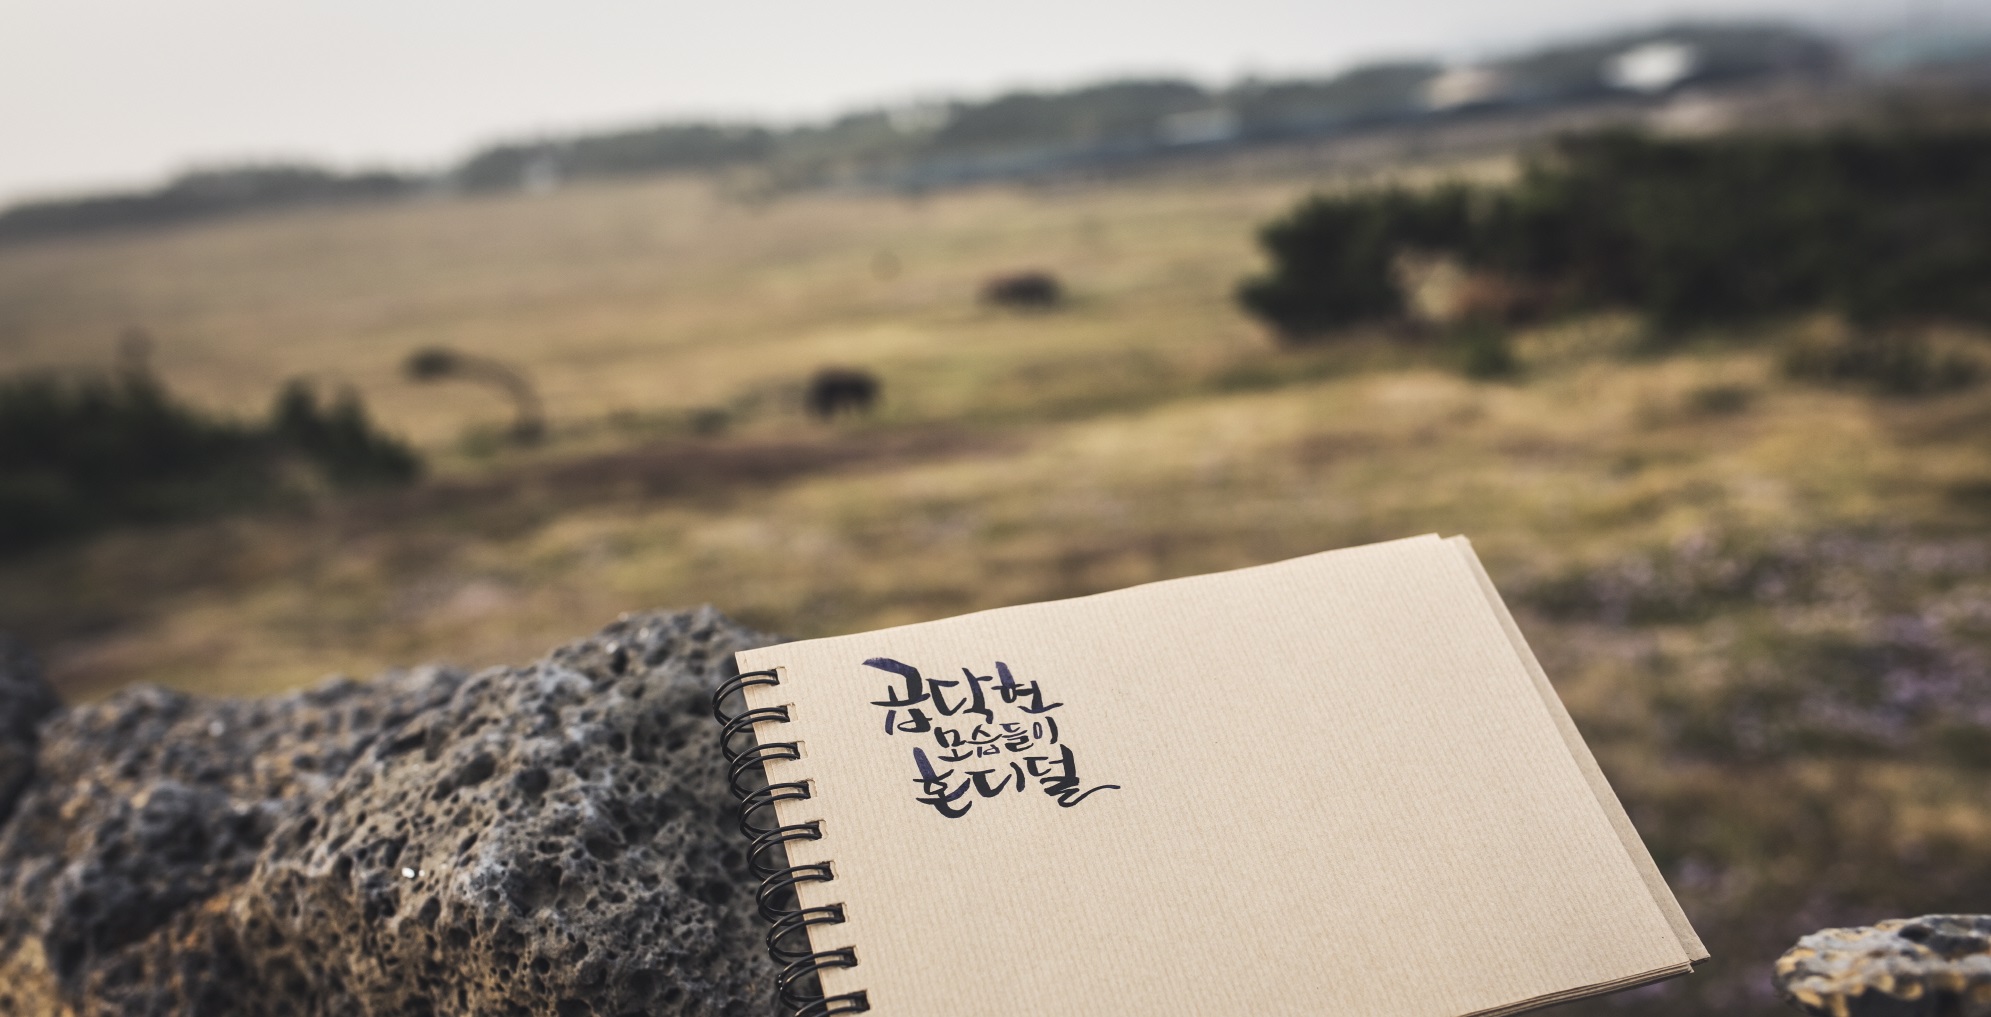 곱닥헌
모습들이
혼디덜